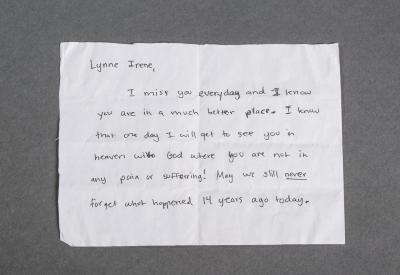 Lynne Irene,
I miss you everyday and I know
you are in a much better place. I know
that one day I will get to see you in
heaven with God where you are not in
any pain or suffering! May we still never
forget what happened 14 years ago today.